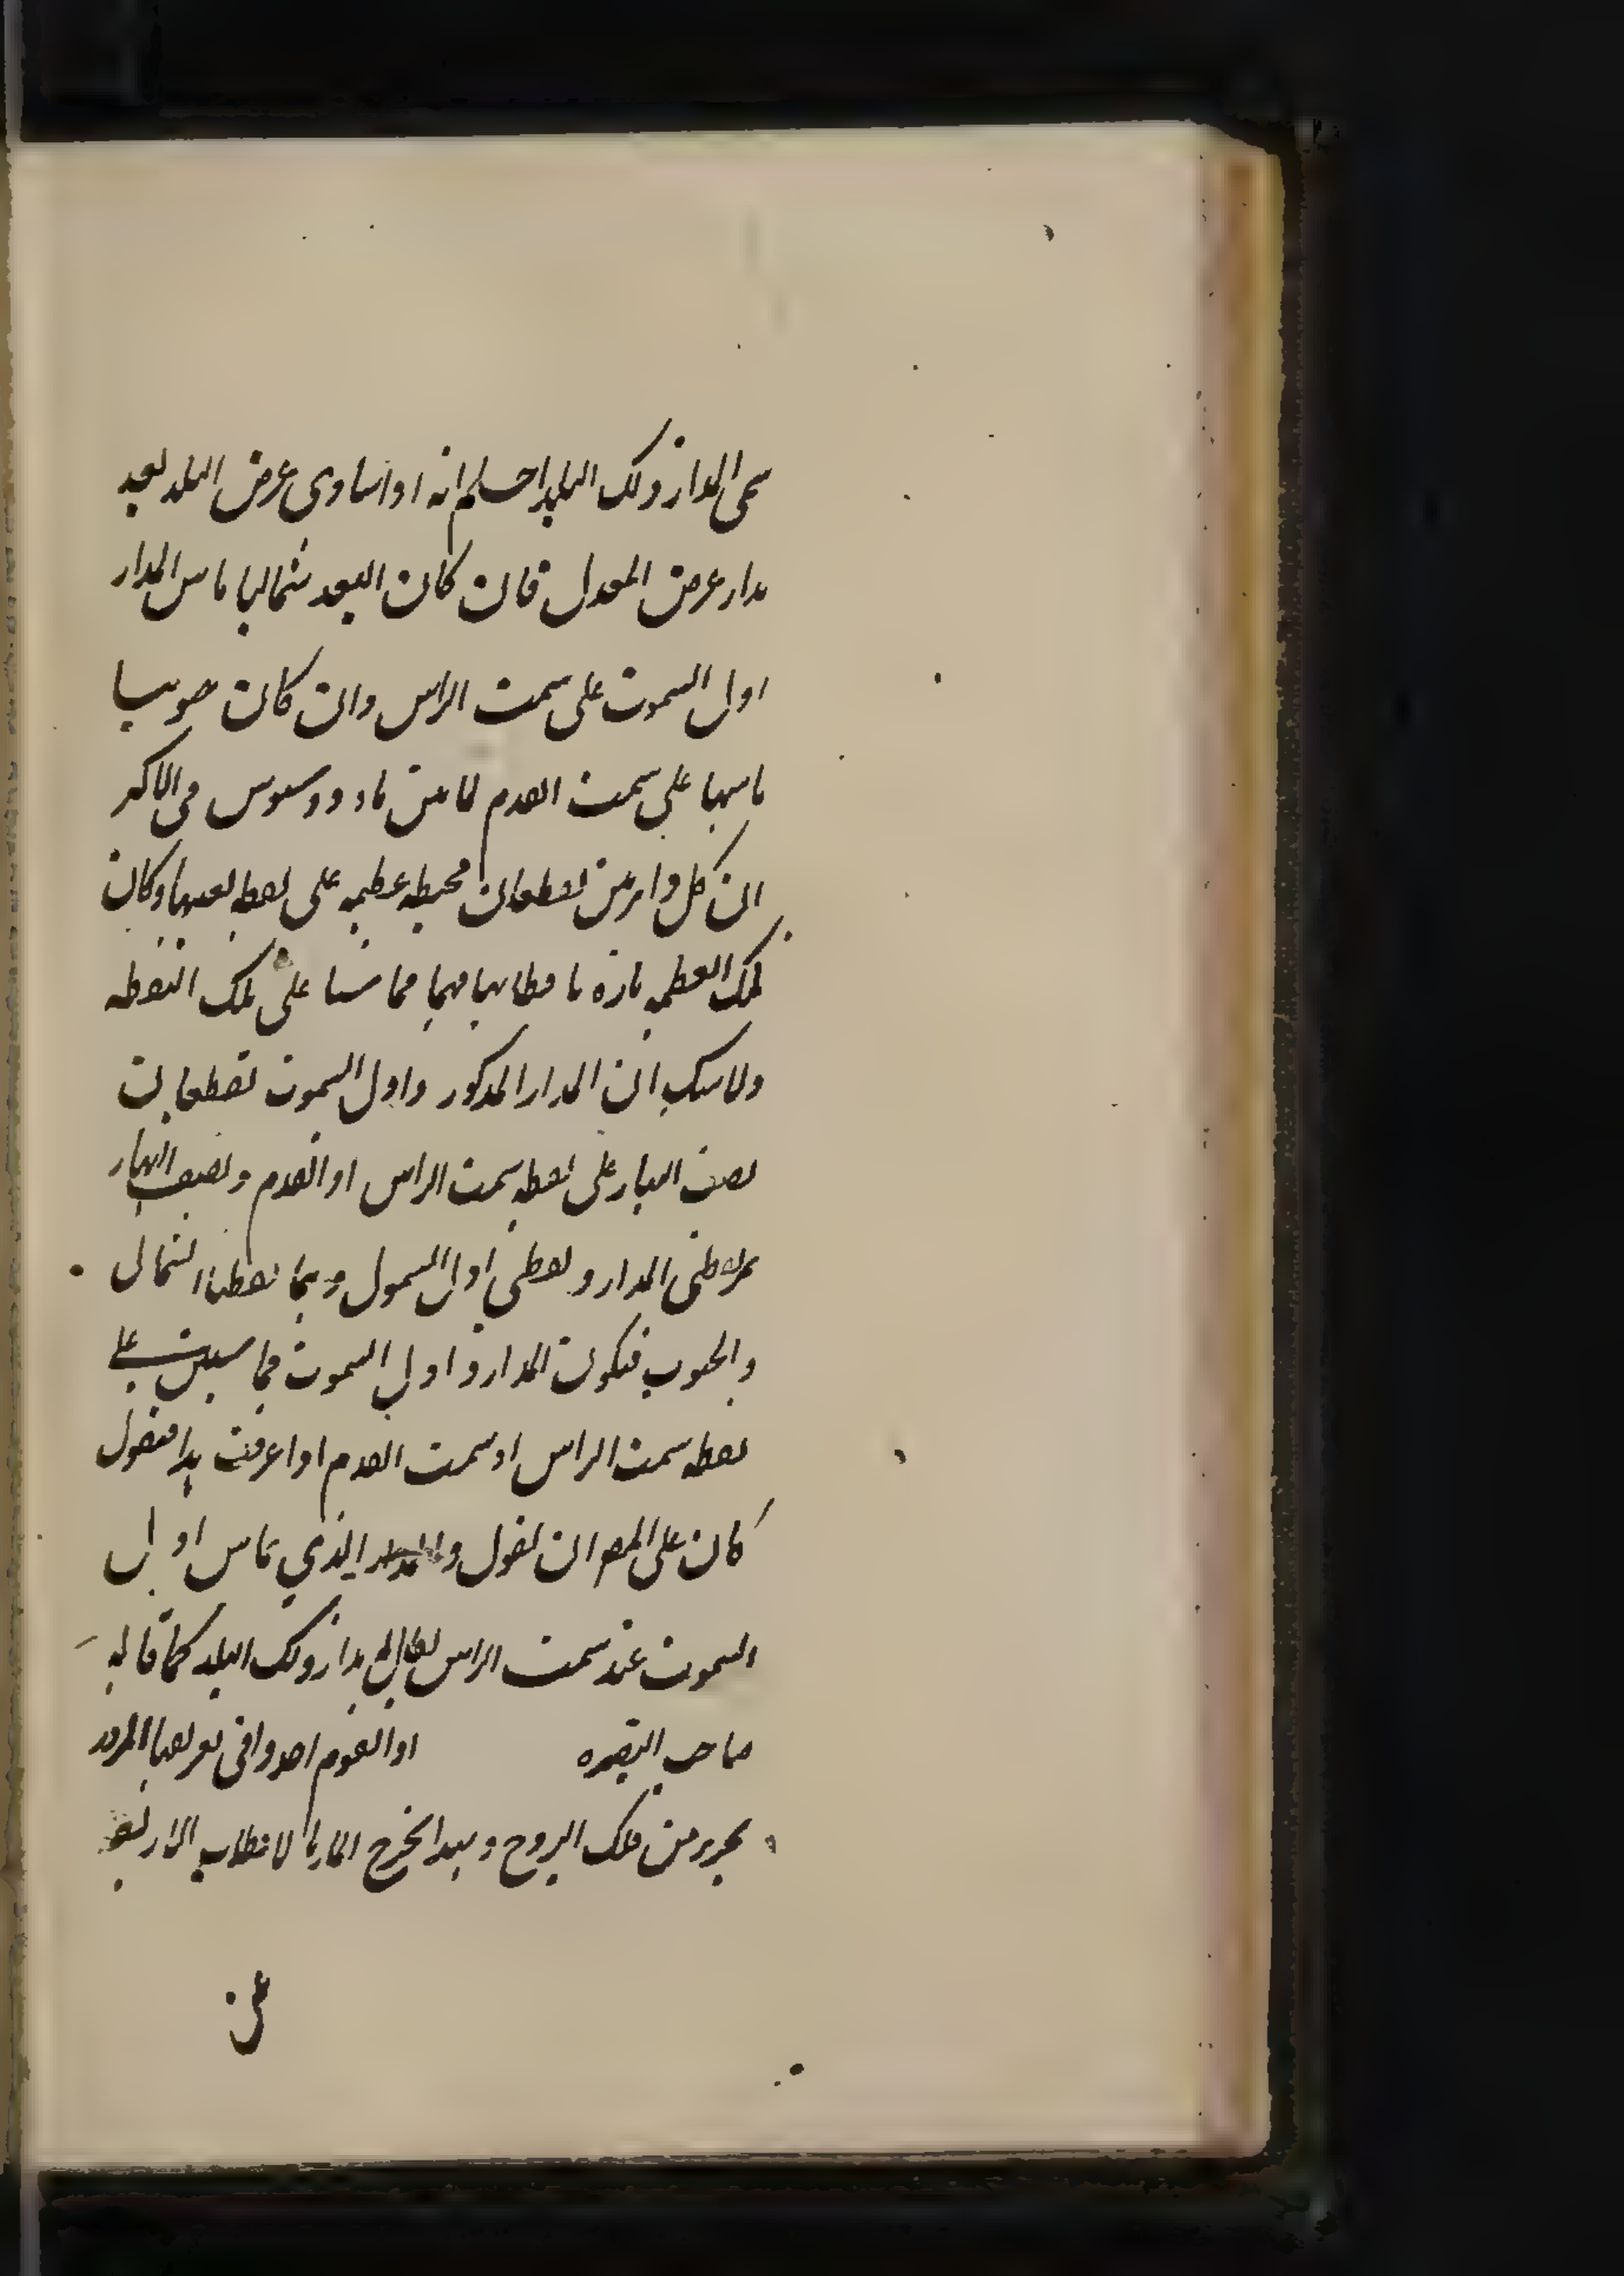 سمى المدار ذلك البلد اعلم انه اذا ساوى عرض البلد بعد
مدار عرض المعدل فان كان البعد شماليا ماس المدار
اول السموت على سمت الراس وان كان جنوبيا
ماسها على سمت القدم لما بين ثاوذوسيوس في الاكر
ان كل دايرتين تقطعان محيطه عظيمه على نقطه بعينها وكان
تلك العظيمه ماره باقطابهما فهما مماستا على تلك النقطه
ولا شك ان المدار المذكور واول السموت تقطعان
نصف النهار على نقطه سمت الراس او القدم ونصف النهار
يمر بقطبى المدار و بقطبى اول السمول وهما نقطتا الشمال
والجنوب فيكون المدار و اول السموت متماسين على
نقطه سمت الراس او سمت القدم اذا عرفت هذا فنقول
كان على المص ان نقول والمدار الذي يماس اول
السموت عند سمت الراس يقال له مدار ذلك البلد كما قاله
صاحب التبصره اذ القوم اخذوا فى تعريفها المرور
بجزء من فلك البروج و بهذا يخرج الماره بالاقطاب الاربعه
عن